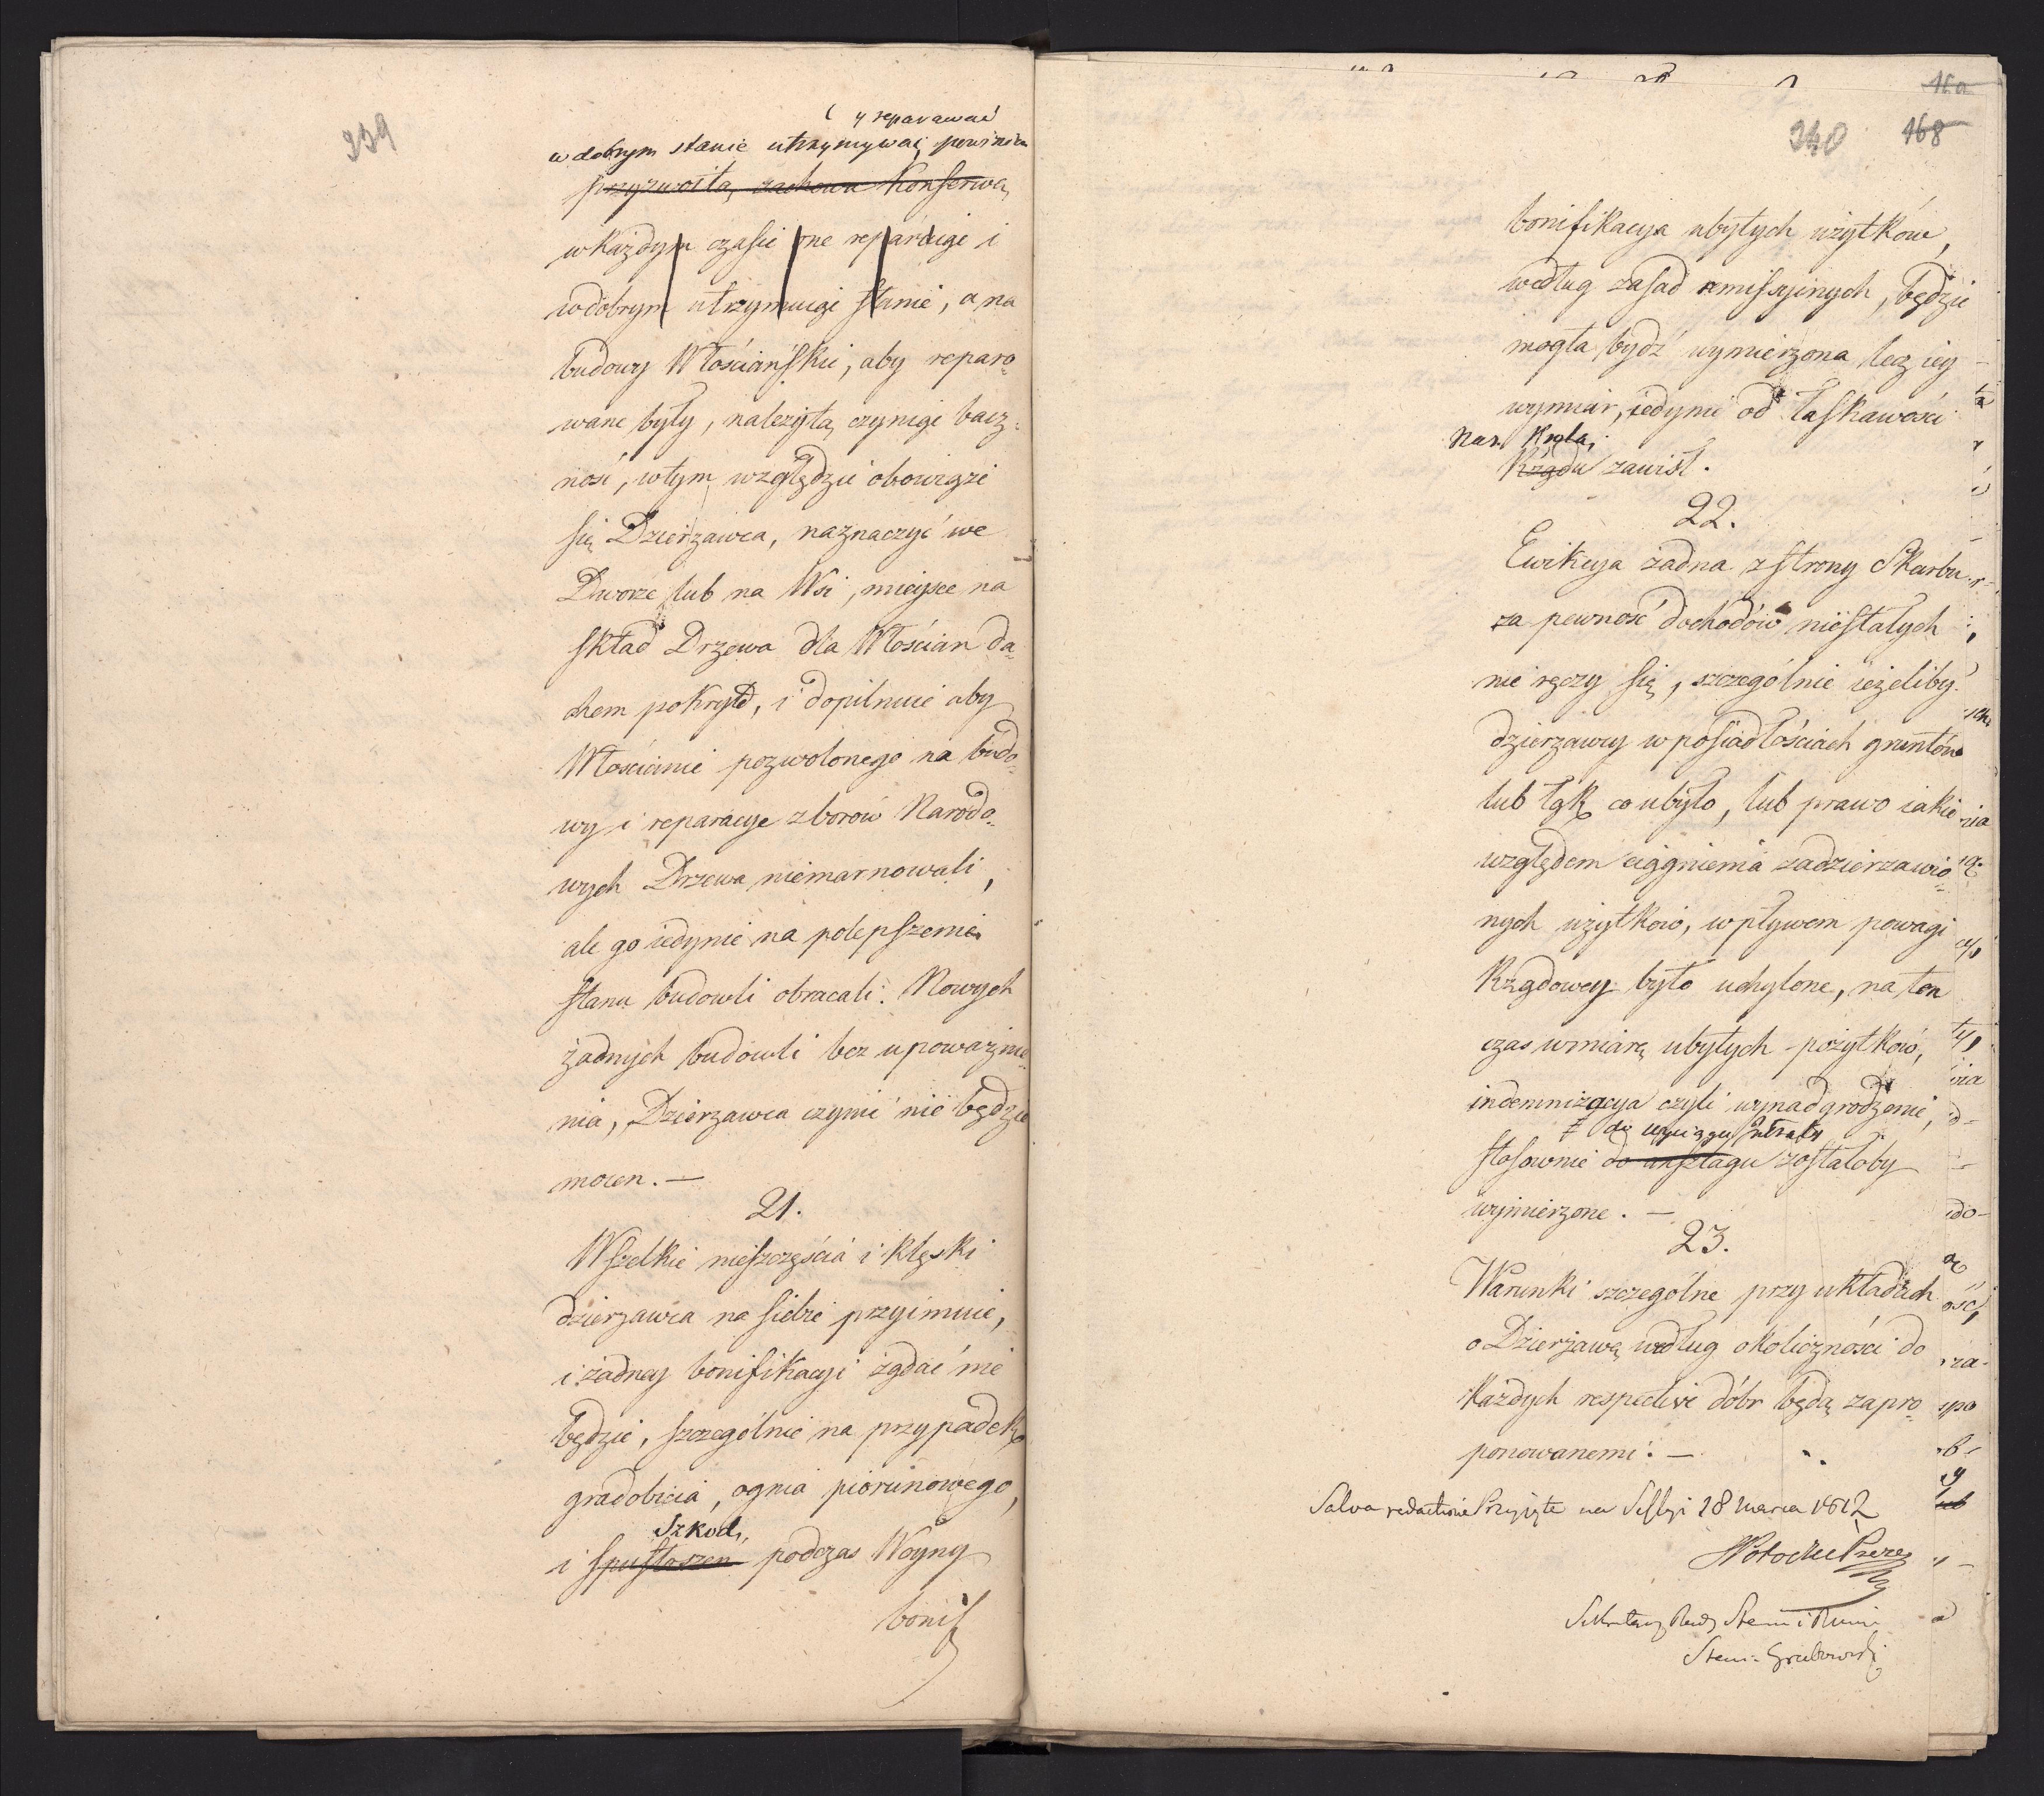 339
y reparawać
w dobrym stanie utrzymywać powinien
przyzwoitą zachowa Konserwę,
w każdym czasie one reparuigi i
w dobrym utrzymuigi stanie, a na
budowy Włościańskie, aby reparo„
wane były, należytą czynigi bacz„
ność, w tym względzie obowigzie
się Dzierżawca, naznaczyć we
Dworze lub na Wsi, mieysce na
skład Drzewa dla Włościan da„
chem pokryte, i dopilnuie aby
Włościanie pozwolonego na budo„
wy i reparacye z borów Narodo„
wych Drzewa niemarnowali,
ale go iedynie na polepszenie
stanu budowli obracali. Nowych
żadnych budowli bez upoważnie„
nia, Dzierżawca czynić nie będzie
mocen. —
21.
Wszelkie nieszczęścia i klęski
dzierżawca na siebie przyimuie,
i żadney bonifikacyi żądać nie
będzie, szczególnie na przypadek
gradobicia, ognia piorunowego,
Szkod,
i spustoszeń podczas Woyny
bonif
160
340 168
bonifikacya ubyłych użytków,
według zasad remissyinych, będzie
mogła bydź wymierzona lecz iey
wymiar, iedynie od łaskawości
Nas. Króla,
Rządu zawisł.
22.
Ewikcya żadna z strony Skarbu
za pewność dochodów niestałych
nie ręczy się, szczególnie ieżeliby
dzierżawcy w posiadłościach gruntów
lub łąk co ubyło, lub prawo iakie
względem ciągnienia zadzierżawio„
nych użytków, wpływem powagi
Rządowey było uchylone, na ten
czas w miarę ubyłych pożytków,
indemnizacya czyli wynadgrodzenie,
do wyciągu intraty
stosownie do anszlagu zostałoby
wymierzone. —
23.
Warunki szczególne przy układach
o Dzierżawę według okoliczności do
każdych respective dóbr będą zapro„
ponowanemi. —
Salva redactione Przyięte na Sessyi 18 marca 1812
SPotocki Prezes
Sekretarz Rady Stanu i Min
Stan. Grabowski